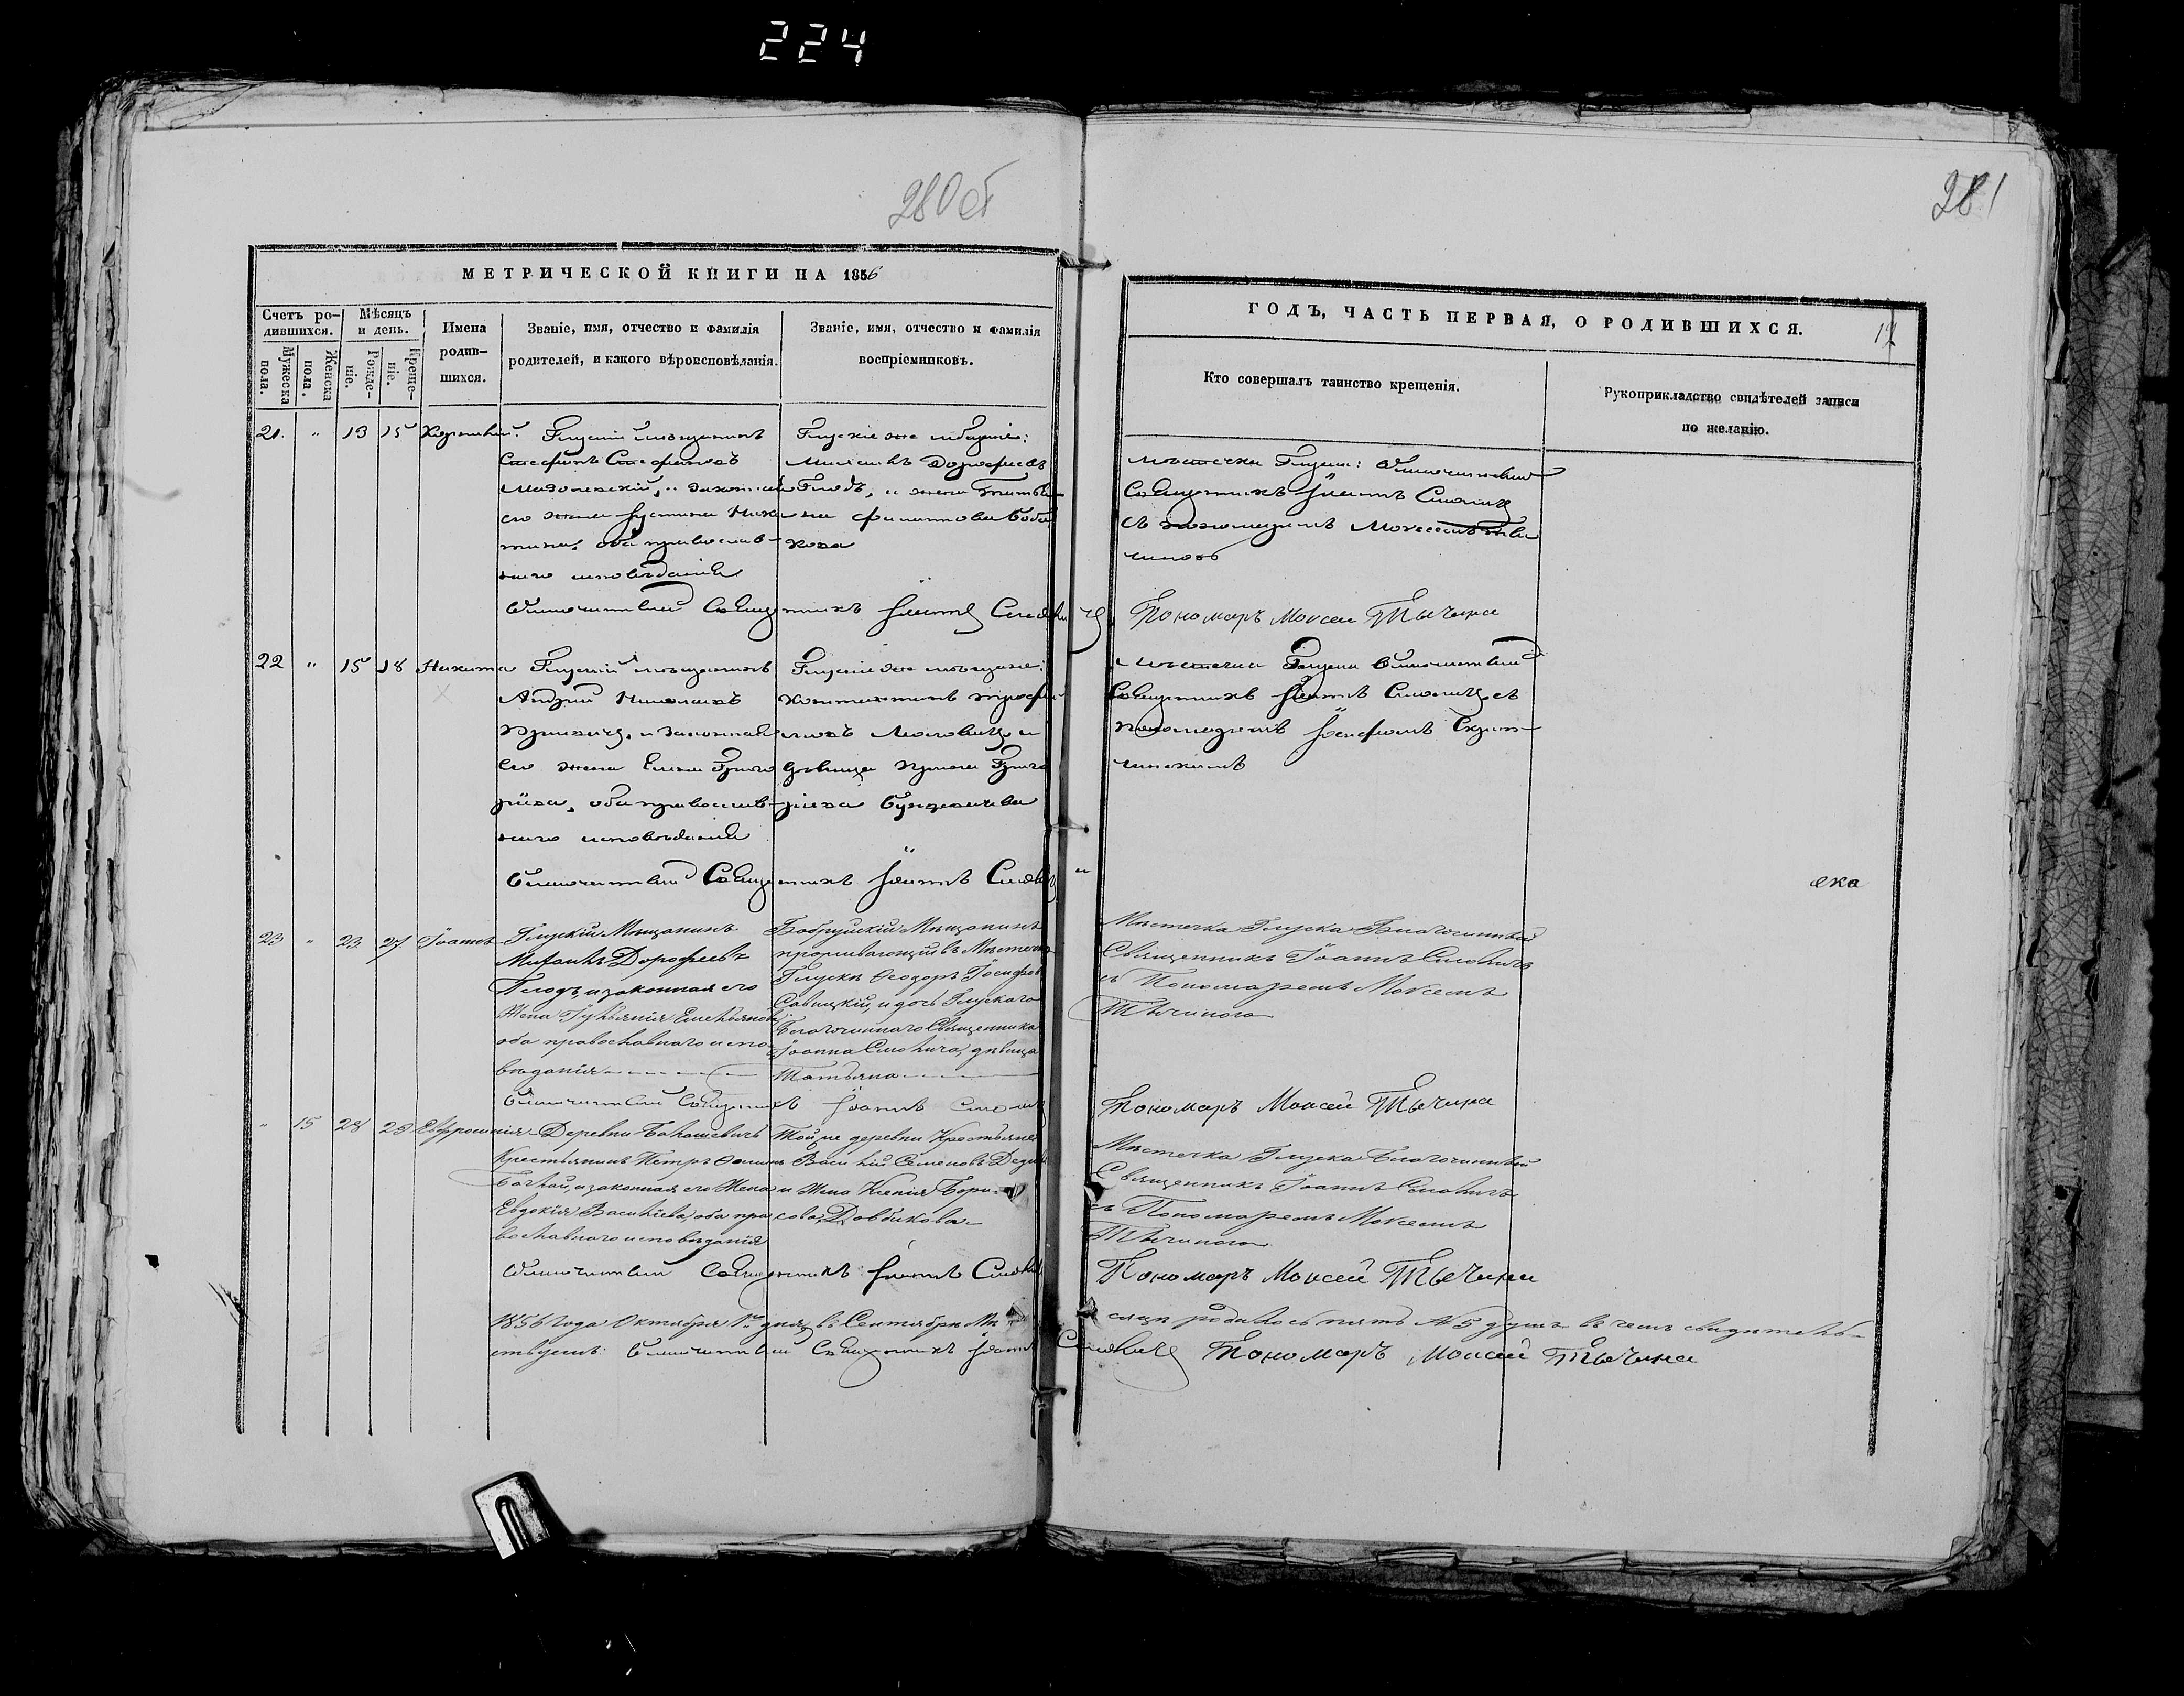 224
280 об
281
МЕТРИЧЕСКОЙ КНИГИ НА 1856
ГОДЪ, ЧАСТЬ ПЕРВАЯ, О РОДИВШИХСЯ.
12
Счетъ ро-
дившихся.
Мѣсяцъ
и день.
Мужеска
пола.
Женска
пола.
Рожде-
ніе.
Креще-
ніе.
Имена
родив-
шихся.
Званіе, имя, отчество и фамилія
родителей, и какого вѣроисповѣданія.
Званіе, имя, отчество и фамилія
воспріемниковъ.
Кто совершалъ таинство крещенія.
Рукоприкладство свидѣтелей записи
по желанію.
21. " 13 15
Глускій мѣщанинъ
Стефанъ Стефановъ
и законная
его жена Іустина Ники-
тина, оба православ-
наго исповѣданія
Глускіе же мѣщане:
Михаилъ Дорофеевъ
Глодъ, и жена
Филиппова
мѣстечка Глуска: Благочинный
Священникъ Іоаннъ Смоличъ
съ пономаремъ Моисеемъ Ты-
чиною
Благочинный Священникъ Іоаннъ Смоличъ
Пономаръ Моисей Тычина
22 " 15 18 Никита
Глускій мѣщанинъ
Андрей Николаевъ
и законная
его жена Елена Григо-
ріева, оба православ-
наго исповѣданія
Глускіе же мѣщане:
Константинъ Трофи-
мовъ и
дѣвица Григо-
ріева
мѣстечка Глуска Благочинный
Священникъ Іоаннъ Смоличъ съ
пономаремъ Іосифомъ
Благочинный Священникъ Іоаннъ Смоличъ
ека
23 " 23 27 Іоаннъ
Глускій Мѣщанинъ
Михаилъ Дорофеевъ
Глодъ, и законная его
Жена Іуліанія Емельянова
оба православнаго испо-
вѣданія
Бобруйскій Мѣщанинъ
проживающій въ Мѣстечкѣ
Глускѣ Ѳеодоръ Іосифовъ
Савицкій, и дочь Глускаго
Благочиннаго Священника
Іоанна Смолича, дѣвица
Татьяна
Мѣстечка Глуска Благочинный
Священникъ Іоаннъ Смоличъ
съ Пономаремъ Моисеемъ
Тычиною
Благочинный Священникъ Іоаннъ Смоличъ
Пономаръ Моисей Тычина
" 15 28 29 Евфросинія
Деревни Балашевичъ
Крестьянинъ Петръ Ѳоминъ
и законная его Жена
Евдокія Васильева, оба пра-
вославнаго исповѣданія
Той же деревни Крестьяне
Василій Семеновъ
и Жена Ксенія Бори-
сова Довбикова
Мѣстечка Глуска Благочинный
Священникъ Іоаннъ Смоличъ
съ Пономаремъ Моисеемъ
Тычиною
Благочинный Священникъ Іоаннъ Смоличъ
Пономаръ Моисей Тычина
1856 года Октября 1го дня, въ Сентябрѣ Мѣсяцѣ родилось пять № 5 душъ въ чемъ свидѣтель-
ствуемъ: Благочинный Священникъ Іоаннъ Смоличъ Пономаръ Моисей Тычина